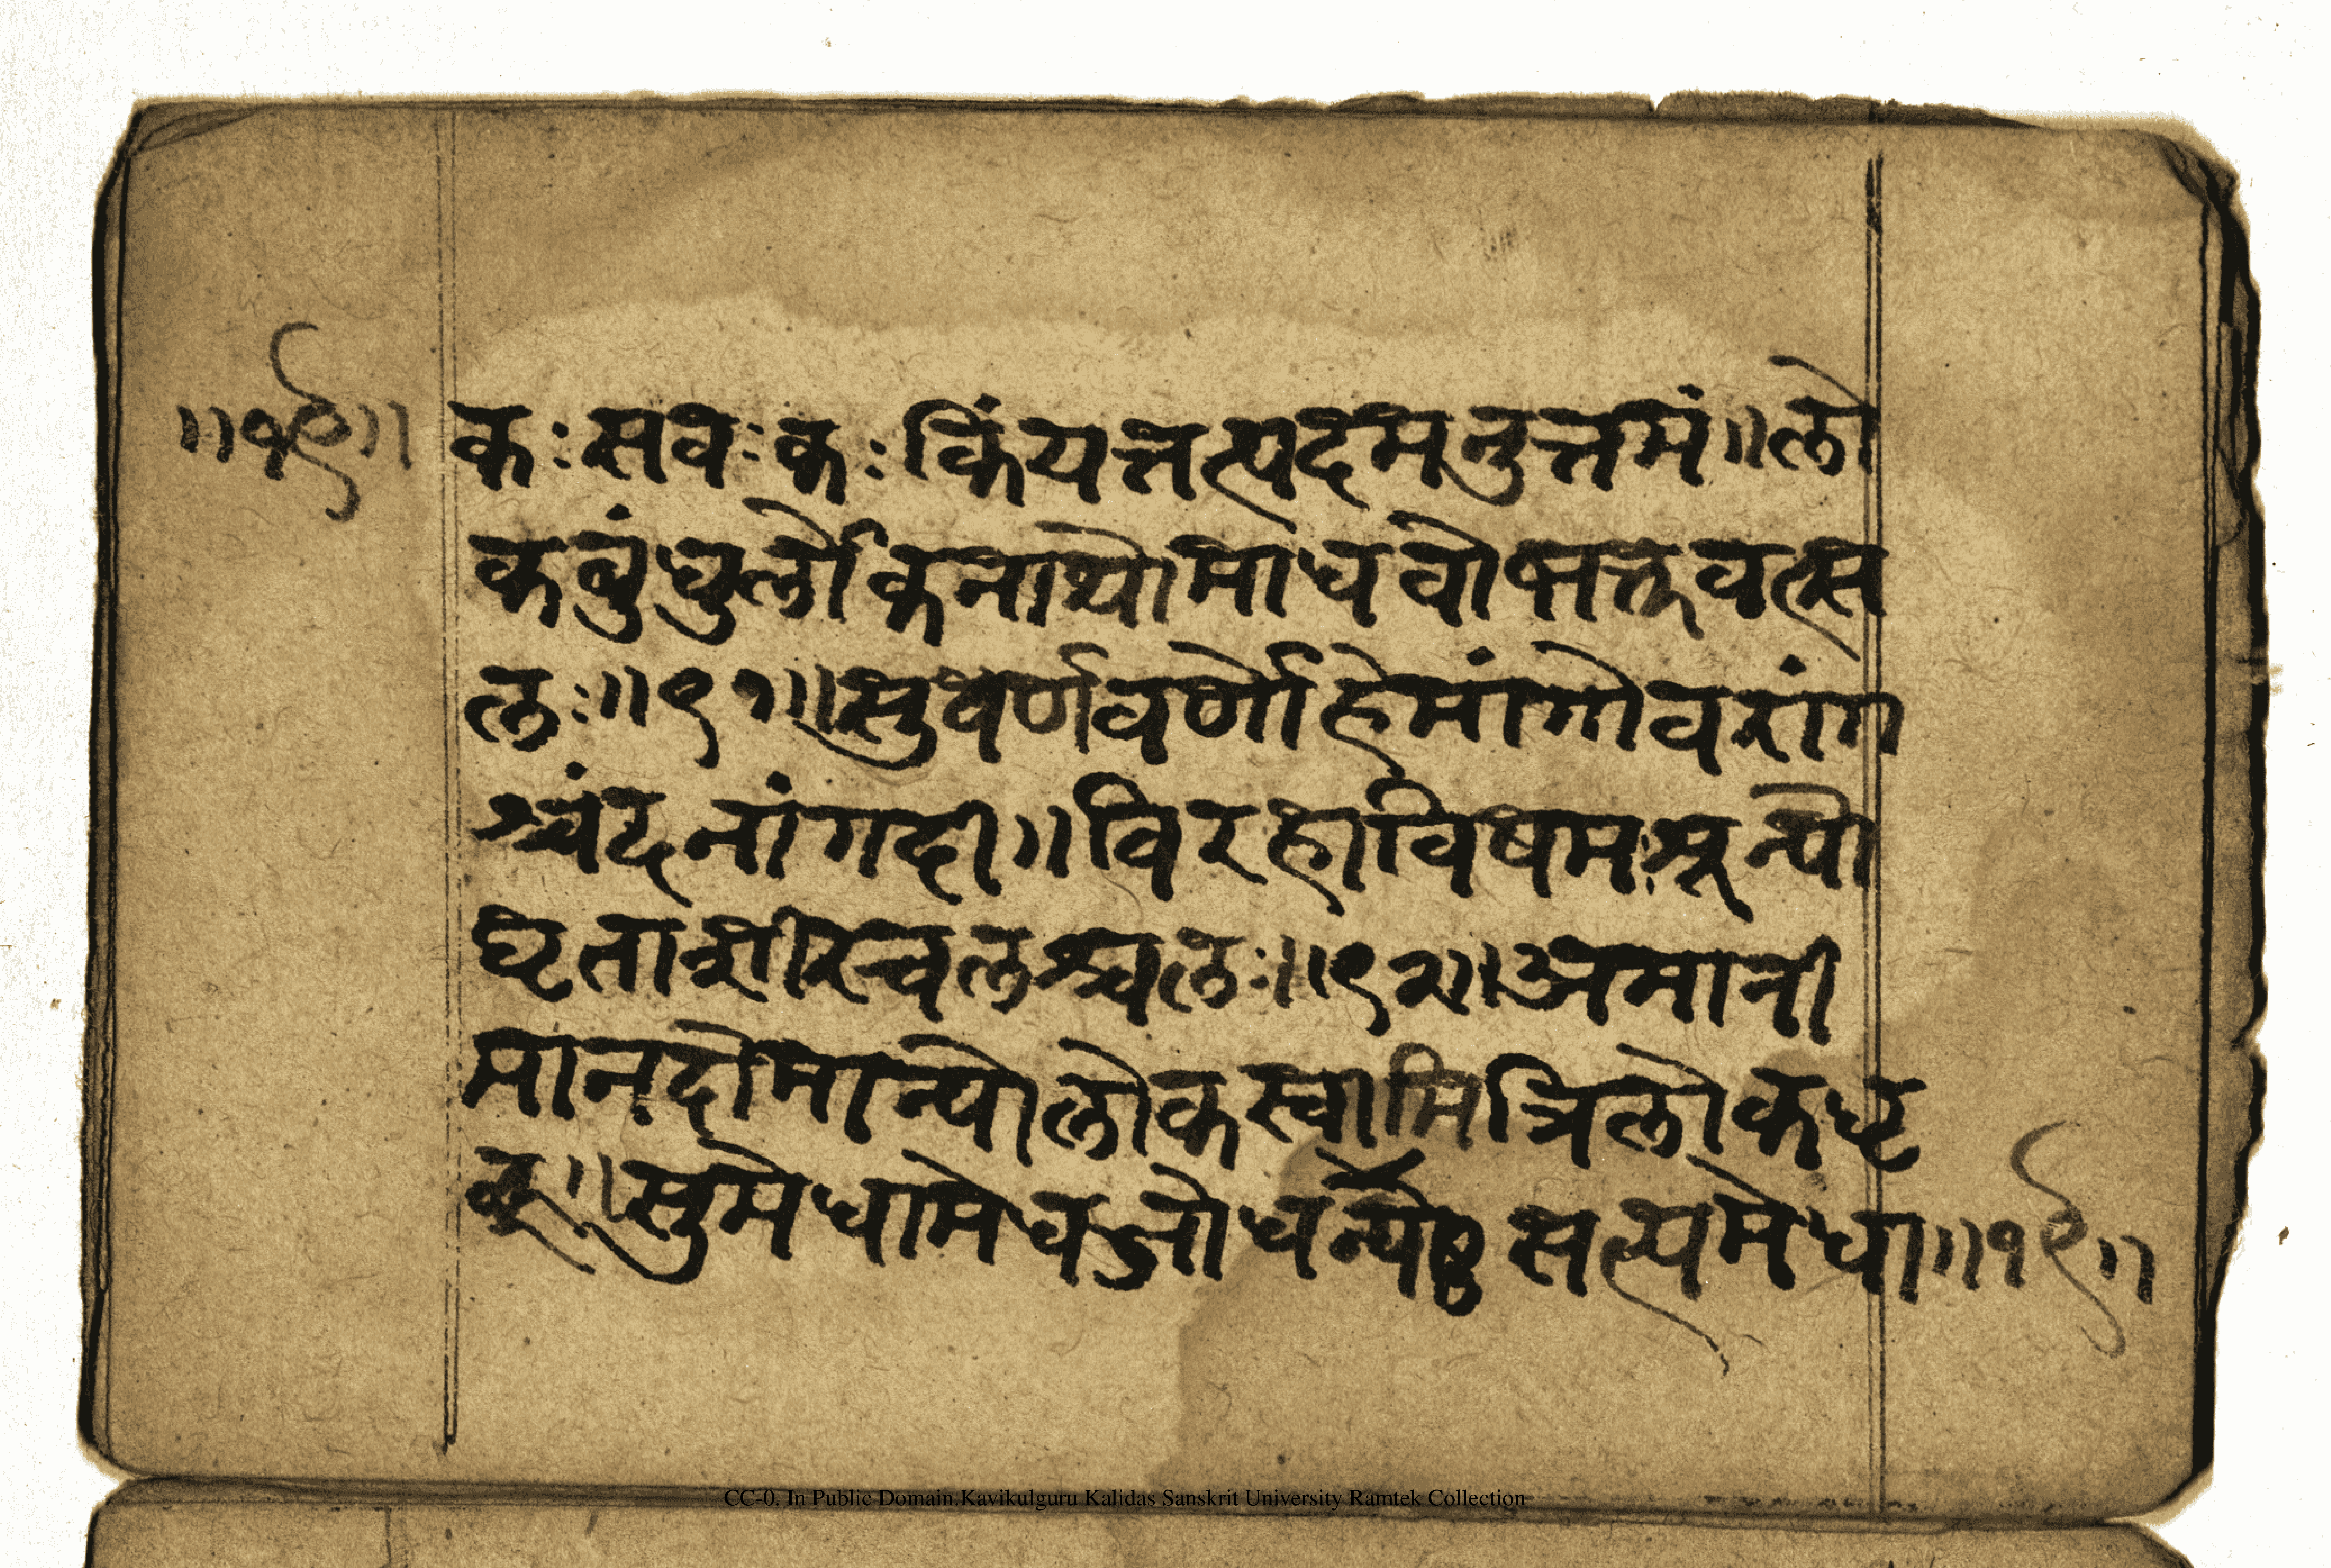 ॥१९॥ कः सवः कः किं यत्तत्पदमनुत्तमं ॥ लो
कबंधुर्लोकनाथो माधवो भक्तवत्स
लः ॥ ९१ ॥ सुवर्णवर्णो हेमांगो वरांग
श्चंदनांगदी ॥ विरहा विषमः श्रून्यो
घृताशीरचलश्चलः ॥ ९२ ॥ अमानी
मानदो मान्यो लोकस्वामि त्रिलोकधृ
क् ॥ सुमेधा मेधजो धन्यो सत्यमेधा ॥१९॥
CC-0. In Public Domain.Kavikulguru Kalidas Sanskrit University Ramtek Collection